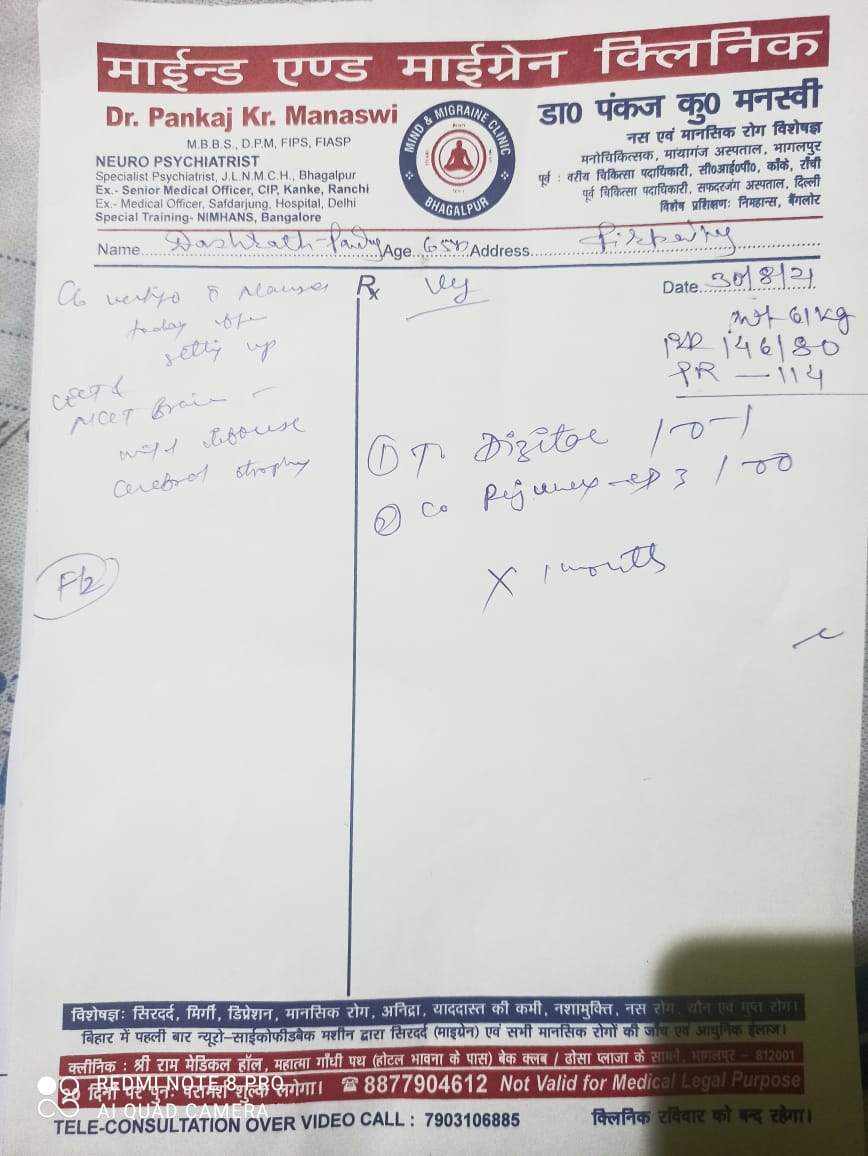 माईन्ड एण्ड माईग्रेन क्लिनिक
Dr. Pankaj Kr. Manaswi
M.B.B.S., D.P.M, FIPS, FIASP
NEURO PSYCHIATRIST
Specialist Psychiatrist, J.L.N.M.C.H., Bhagalpur
Ex.- Senior Medical Officer, CIP, Kanke, Ranchi
Ex.- Medical Officer, Safdarjung, Hospital, Delhi
Special Training- NIMHANS, Bangalore
MIND & MIGRAINE CLINIC
BHAGALPUR
डा० पंकज कु० मनस्वी
नस एवं मानसिक रोग विशेषज्ञ
मनोचिकित्सक, मायागंज अस्पताल, भागलपुर
पूर्व : वरीय चिकित्सा पदाधिकारी, सी०आई०पी०, काँके, राँची
पूर्व चिकित्सा पदाधिकारी, सफदरजंग अस्पताल, दिल्ली
विशेष प्रशिक्षण: निमहान्स, बैंगलोर
Name Dashrath Age 65 Address
Rx
Date 30/8/21
wt 61kg
BP 146/80
PR - 114
C/o vertigo
today
setting up
NCCT Brain -
mild diffuse
cerebral atrophy
① T. 1-0-1
②
X 1 month
विशेषज्ञः सिरदर्द, मिर्गी, डिप्रेशन, मानसिक रोग, अनिद्रा, याददास्त की कमी, नशामुक्ति, नस रोग, यौन एवं गुप्त रोग।
बिहार में पहली बार न्यूरो-साईकोफीडबैक मशीन द्वारा सिरदर्द (माइग्रेन) एवं सभी मानसिक रोगों की जाँच एवं आधुनिक ईलाज।
क्लीनिक : श्री राम मेडिकल हॉल, महात्मा गाँधी पथ (होटल भावना के पास) बेक क्लब / ढोसा प्लाजा के सामने, भागलपुर - 812001
दिनों पर पुनः परामर्श शुल्क लगेगा। ☎8877904612 Not Valid for Medical Legal Purpose
TELE-CONSULTATION OVER VIDEO CALL : 7903106885 क्लिनिक रविवार को बन्द रहेगा।
REDMI NOTE 8 PRO
AI QUAD CAMERA